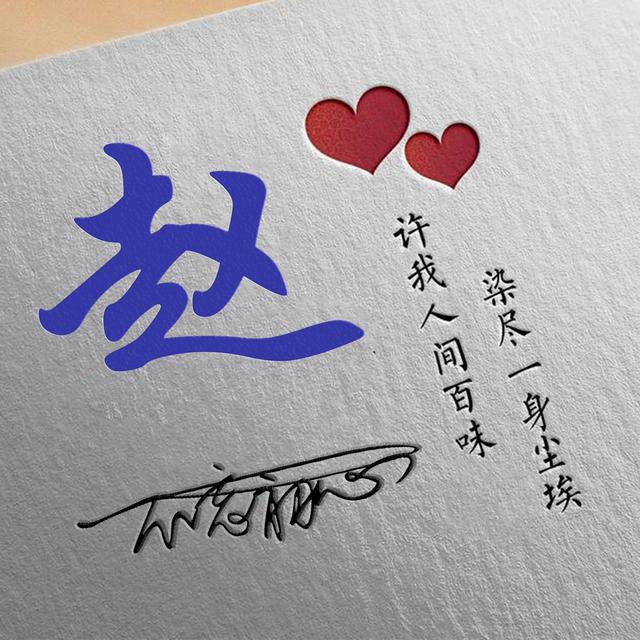 赵
染尽一身尘埃
许我人间百味